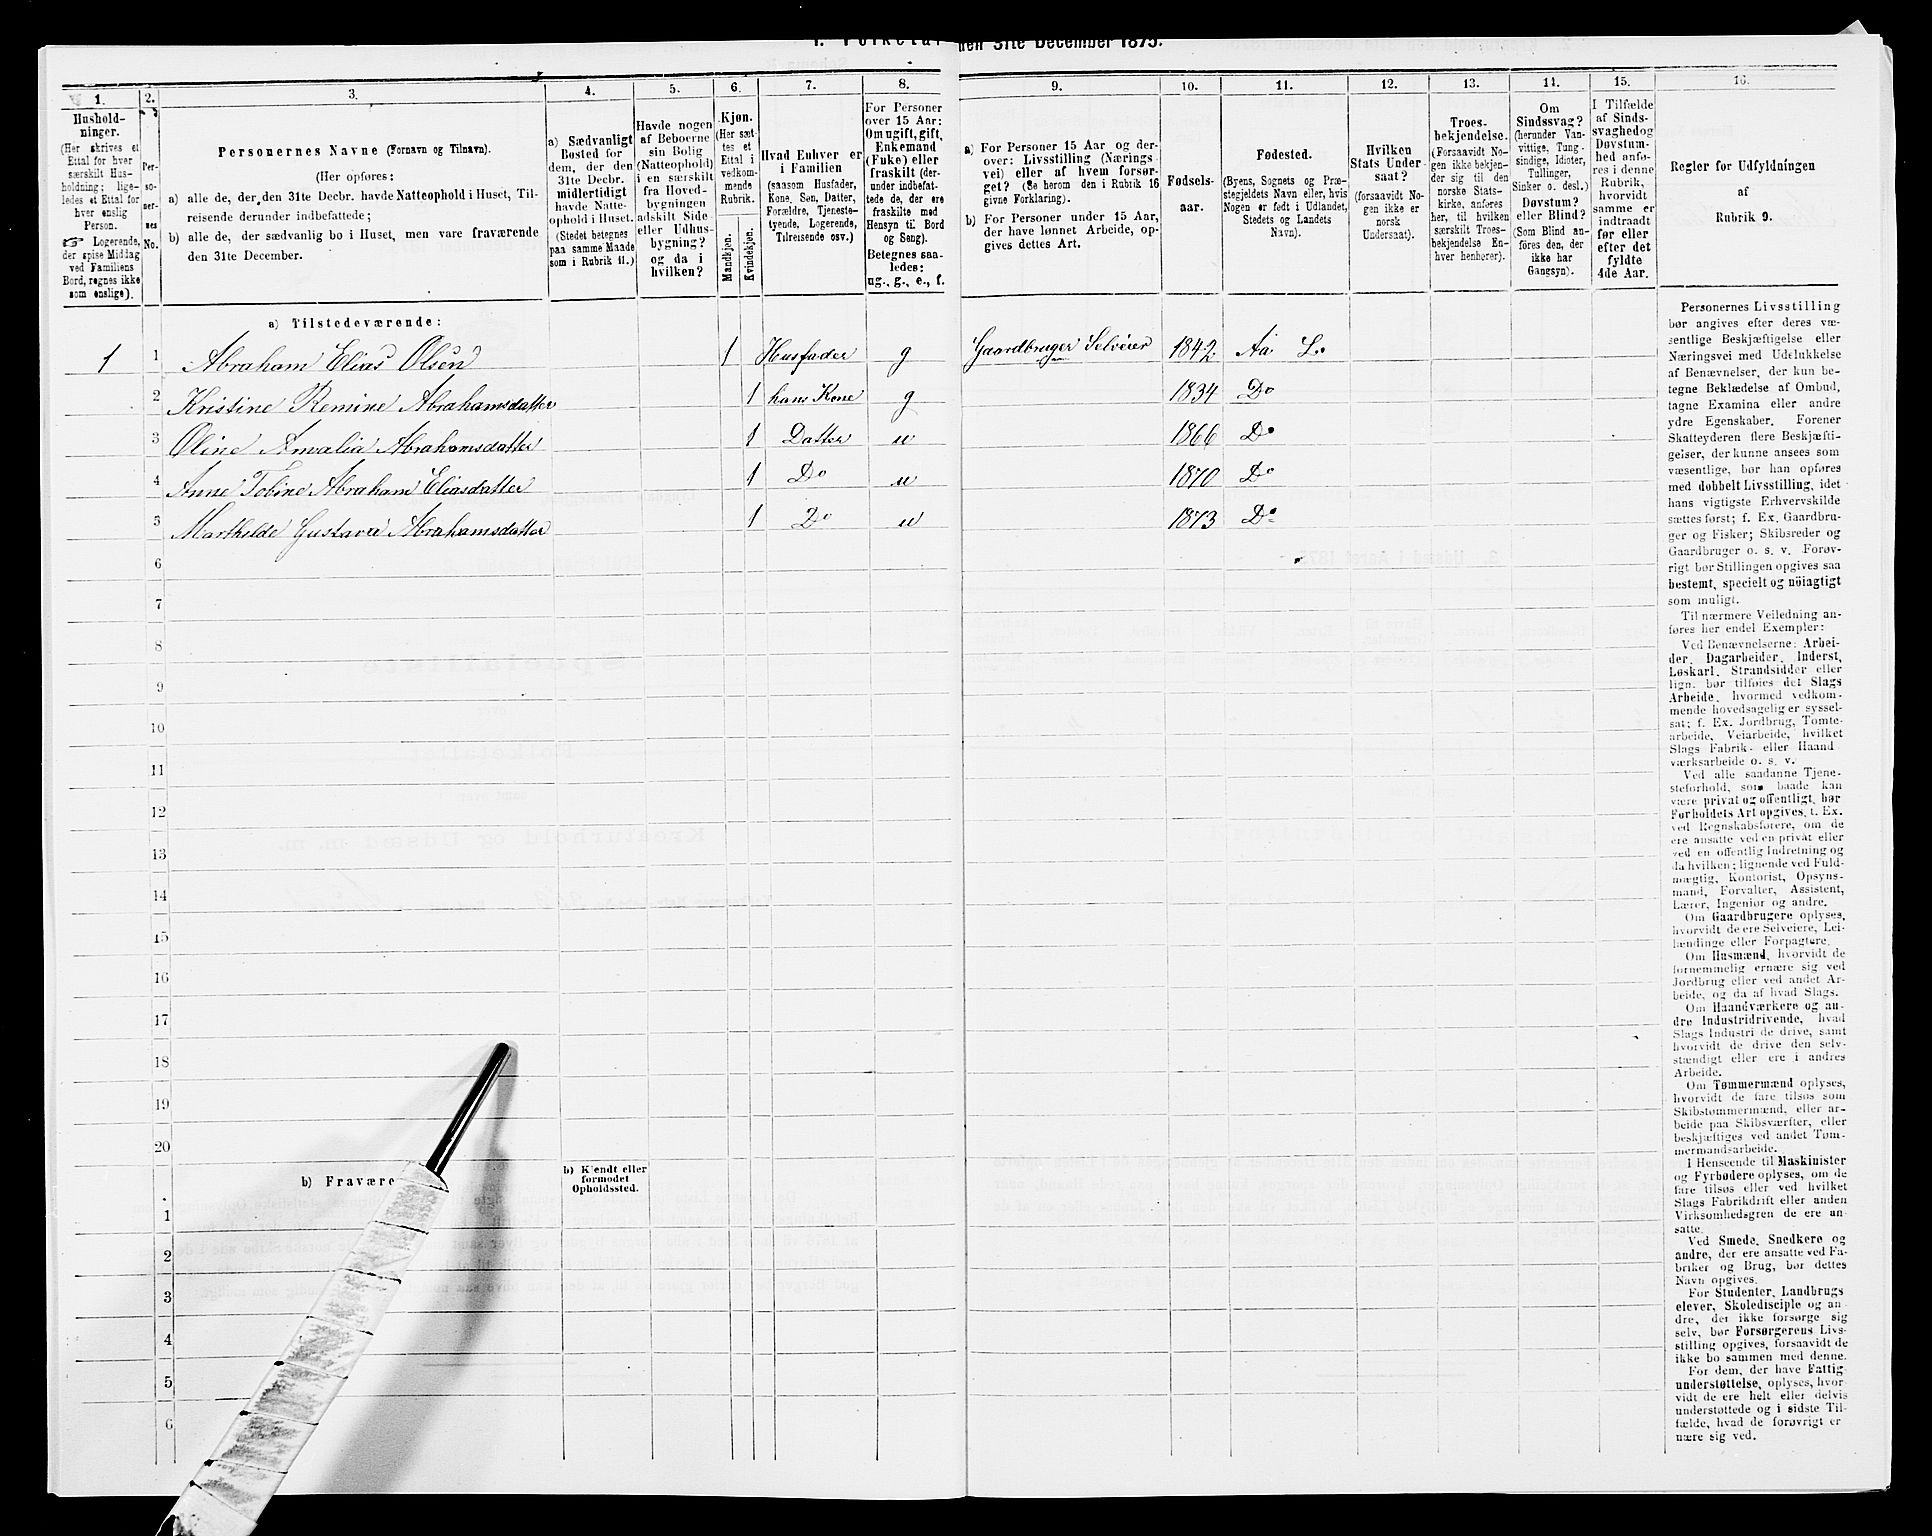 den 31te December 1875.
1.
Hushold-
ninger.
(Her skrives et
Ettal for hver
særskilt Hus-
holdning; lige-
ledes et Ettal for
hver enslig
Person.
☞ Logerende,
der spise Middag
ved Familiens
Bord, regnes ikke
som enslige).
2.
Per-
so-
ner-
nes
No.
3.
Personernes Navne (Fornavn og Tilnavn).
(Her opføres:
a) alle de, der den 31te Decbr. havde Natteophold i Huset, Til-
reisende derunder indbefattede;
b) alle de, der sædvanlig bo i Huset, men vare fraværende
den 31te December.
4.
a) Sædvanligt
Bosted for
dem, der den
31te Decbr.
midlertidigt
havde Natte-
ophold i Huset.
(Stedet betegnes
paa samme Maade
som i Rubrik 11.)
5.
Havde nogen
af Beboerne
sin Bolig
(Natteophold)
i en særskilt
fra Hoved-
bygningen
adskilt Side-
eller Udhus-
bygning?
og da i
hvilken?
6.
Kjøn.
(Her sæt-
tes et
Ettal i
vedkom-
mende
Rubrik.
Mandkjøn.
Kvindekjøn.
7.
Hvad Enhver er
i Familien
(saasom Husfader,
Kone, Søn, Datter,
Forældre, Tjeneste-
tyende, Logerende,
Tilreisende osv.)
8.
For Personer
over 15 Aar:
Om ugift, gift,
Enkemand
(Enke) eller
fraskilt (der-
under indbefat-
tede de, der ere
fraskilte med
Hensyn til Bord
og Seng).
Betegnes saa-
ledes:
ug., g., e., f.
9.
a) For Personer 15 Aar og der-
over: Livsstilling (Nærings
vei) eller af hvem forsør-
get? (Se herom den i Rubrik 16
givne Forklaring).
b) For Personer under 15 Aar,
der have lønnet Arbeide, op-
gives dettes Art.
10.
Fødsels-
aar.
11.
Fødested.
(Byens, Sognets og Præ-
stegjeldets Navn eller, hvis
Nogen er født i Udlandet,
Stedets og Landets
Navn).
12.
Hvilken
Stats Under-
saat?
(forsaavidt No-
gen ikke er
norsk
Undersaat).
13.
Troes-
bekjendelse.
(Forsaavidt No-
gen ikke bekjen-
der sig til den
norske Stats-
kirke, anføres
her, til hvilken
særskilt Troes-
bekjendelse En-
hver henhører).
14.
Om
Sindssvag?
(herunder Van-
vittige, Tung-
sindige, Idioter,
Tullinger,
Sinker o. desl.)
Døvstum?
eller Blind?
(Som Blind an-
føres den, der
ikke har
Gangsyn).
15.
I Tilfælde
af Sinds-
svaghed og
Døvstum-
hed anfø-
res i denne
Rubrik,
hvorvidt
samme er
indtraadt
før eller
efter det
fyldte
4de Aar.
16.
Regler for Udfyldningen
af
Rubrik 9.
a) Tilstedeværende:
1 1 Abraham Elias Olsen 1 Husfader g Gaardbruger Selveier 1842 Aa L.
2 Kristine Remine Abrahamsdatter 1 hans Kone g 1834 Do
3 Oline Amalia Abrahamsdatter 1 Datter u 1866 Do
4 Anne Tobine Abraham Eliasdatter 1 Do u 1870 Do
5 Marthelde Gustava Abrahamsdatter 1 Do u 1873 Do
6
7
8
9
10
11
12
13
14
15
16
17
18
19
20
b) Fravære
b) Kjendt eller
formodet
Opholdssted.
1
2
3
4
5
6
Personernes Livsstilling
bør angives efter deres væ-
sentlige Beskjæftigelse eller
Næringsvei med Udelukkelse
af Benævnelser, der kun be-
tegne Beklædelse af Ombud,
tagne Examina eller andre
ydre Egenskaber. Forener
Skatteyderen flere Beskjæfti-
gelser, der kunne ansees som
væsentlige, bør han opføres
med dobbelt Livsstilling, idet
hans vigtigste Erhvervskilde
sættes først; f. Ex. Gaardbru-
ger og Fisker; Skibsreder og
Gaardbruger o. s. v. Forøv-
rigt bør Stillingen opgives saa
bestemt, specielt og nøiagtigt
som muligt.
Til nærmere Veiledning an-
føres her endel Exempler:
Ved Benævnelserne: Arbei-
der, Dagarbeider, Inderst,
Løskarl, Strandsidder eller
lign. bør tilføies det Slags
Arbeide, hvormed vedkom-
mende hovedsagelig er syssel-
sat; f. Ex. Jordbrug, Tomte-
arbeide, Veiarbeide, hvilket
Slags Fabrik- eller Haand
værksarbeide o. s. v.
Ved alle saadanne Tjene-
steforhold, som baade kan
være privat og offentligt, bør
Forholdets Art opgives, t. Ex.
ved Regnskabsførere, om de
ere ansatte ved en privat eller
ved en offentlig Indretning og
da hvilken; lignende ved Fuld-
mægtig, Kontorist, Opsyns-
mand, Forvalter, Assistent,
Lærer, Ingeniør og andre.
Om Gaardbrugere oplyses,
hvorvidt de ere Selveiere, Lei-
lændinge eller Forpagtere.
Om Husmænd, hvorvidt de
fornemmelig ernære sig ved
Jordbrug eller ved andet Ar-
beide, og da af hvad Slags.
Om Haandværkere og an-
dre Industridrivende, hvad
Slags Industri de drive, samt
hvorvidt de drive den selv-
stændigt eller ere i andres
Arbeide.
Om Tømmermænd oplyses,
hvorvidt de fare tilsøs som
Skibstømmermænd, eller ar-
beide paa Skibsværfter, eller
beskjæftiges ved andet Tøm-
mermandsarbeide.
I Henseende til Maskinister
og Fyrbødere oplyses, om de
fare tilsøs eller ved hvilket
Slags Fabrikdrift eller anden
Virksomhedsgren de ere an-
satte.
Ved Smede, Snedkere og
andre, der ere ansatte ved Fa-
briker og Brug, bør dettes
Navn opgives.
For Studenter, Landbrugs
elever, Skoledisciple og an-
dre, der ikke forsørge sig
selv, bør Forsørgerens Livs-
stilling opgives, forsaavidt de
ikke bo sammen med denne.
For dem, der have Fattig-
understøttelse, oplyses, hvor-
vidt de ere helt eller delvis
understøttede og i sidste Til-
fælde, hvad de forøvrigt er
nære sig ved.